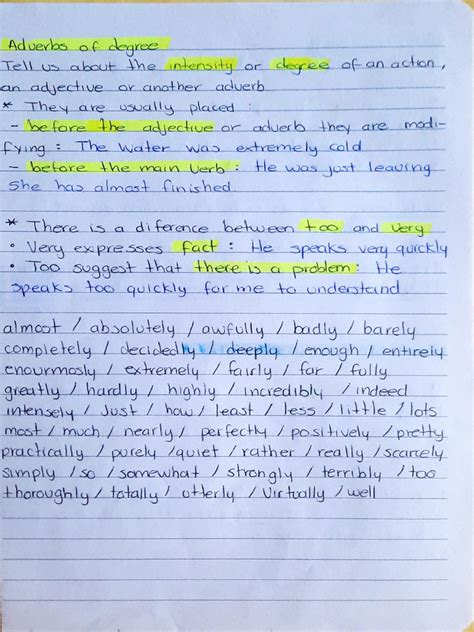 Adverbs of degree
Tell us about the intensity or degree of an action,
an adjective or another adverb.
* They are usually placed :
- before the adjective or adverb they are modi-
fying : The water was extremely cold
- before the main verb : He was just leaving
She has almost finished.
* There is a diference between too and very
• Very expresses fact : He speaks very quickly
• Too suggest that there is a problem : He
speaks too quickly for me to understand
almost / absolutely / awfully / badly / barely
completely / decidedly / deeply / enough / entirely
enourmosly / extremely / fairly / far / fully
greatly / hardly / highly / incredibly / indeed
intensely / Just / how / least / less / little / lots
most / much / nearly / perfectly / positively / pretty
practically / purely / quiet / rather / really / scarcely
simply / so / somewhat / strongly / terribly / too
thoroughly / totally / otterly / Virtually / well